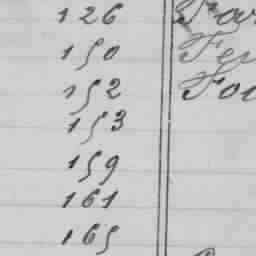 126
150
152
153
159
161
165